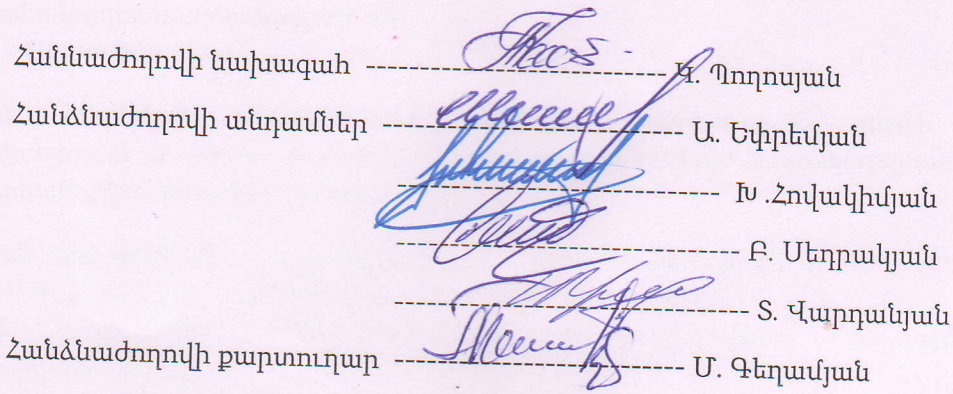 Հաննաժողովի նախագահ ------------------------------ Կ. Պողոսյան
Հանձնաժողովի անդամներ ------------------------------ Ա. Եփրեմյան
-------------------------------- Խ .Հովակիմյան
---------------------------------- Բ. Սեդրակյան
----------------------------------- Տ. Վարդանյան
Հանձնաժողովի քարտուղար ----------------------------- Մ. Գեղամյան